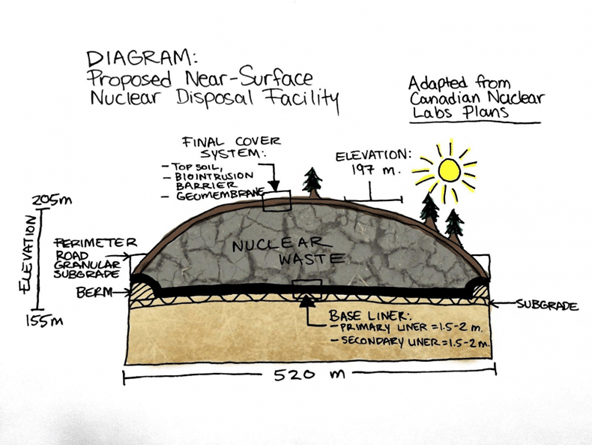 DIAGRAM:
Proposed Near-Surface
Nuclear Disposal Facility
Adapted from
Canadian Nuclear
Labs Plans
FINAL COVER
SYSTEM:
- TOP SOIL,
- BIOINTRUSION
BARRIER
- GEOMEMBRANE
ELEVATION:
197 m.
205m
ELEVATION
155m
PERIMETER
ROAD
GRANULAR
SUBGRADE
BERM
NUCLEAR
WASTE
SUBGRADE
BASE LINER:
- PRIMARY LINER = 1.5-2 m.
- SECONDARY LINER = 1.5-2 m.
520 m